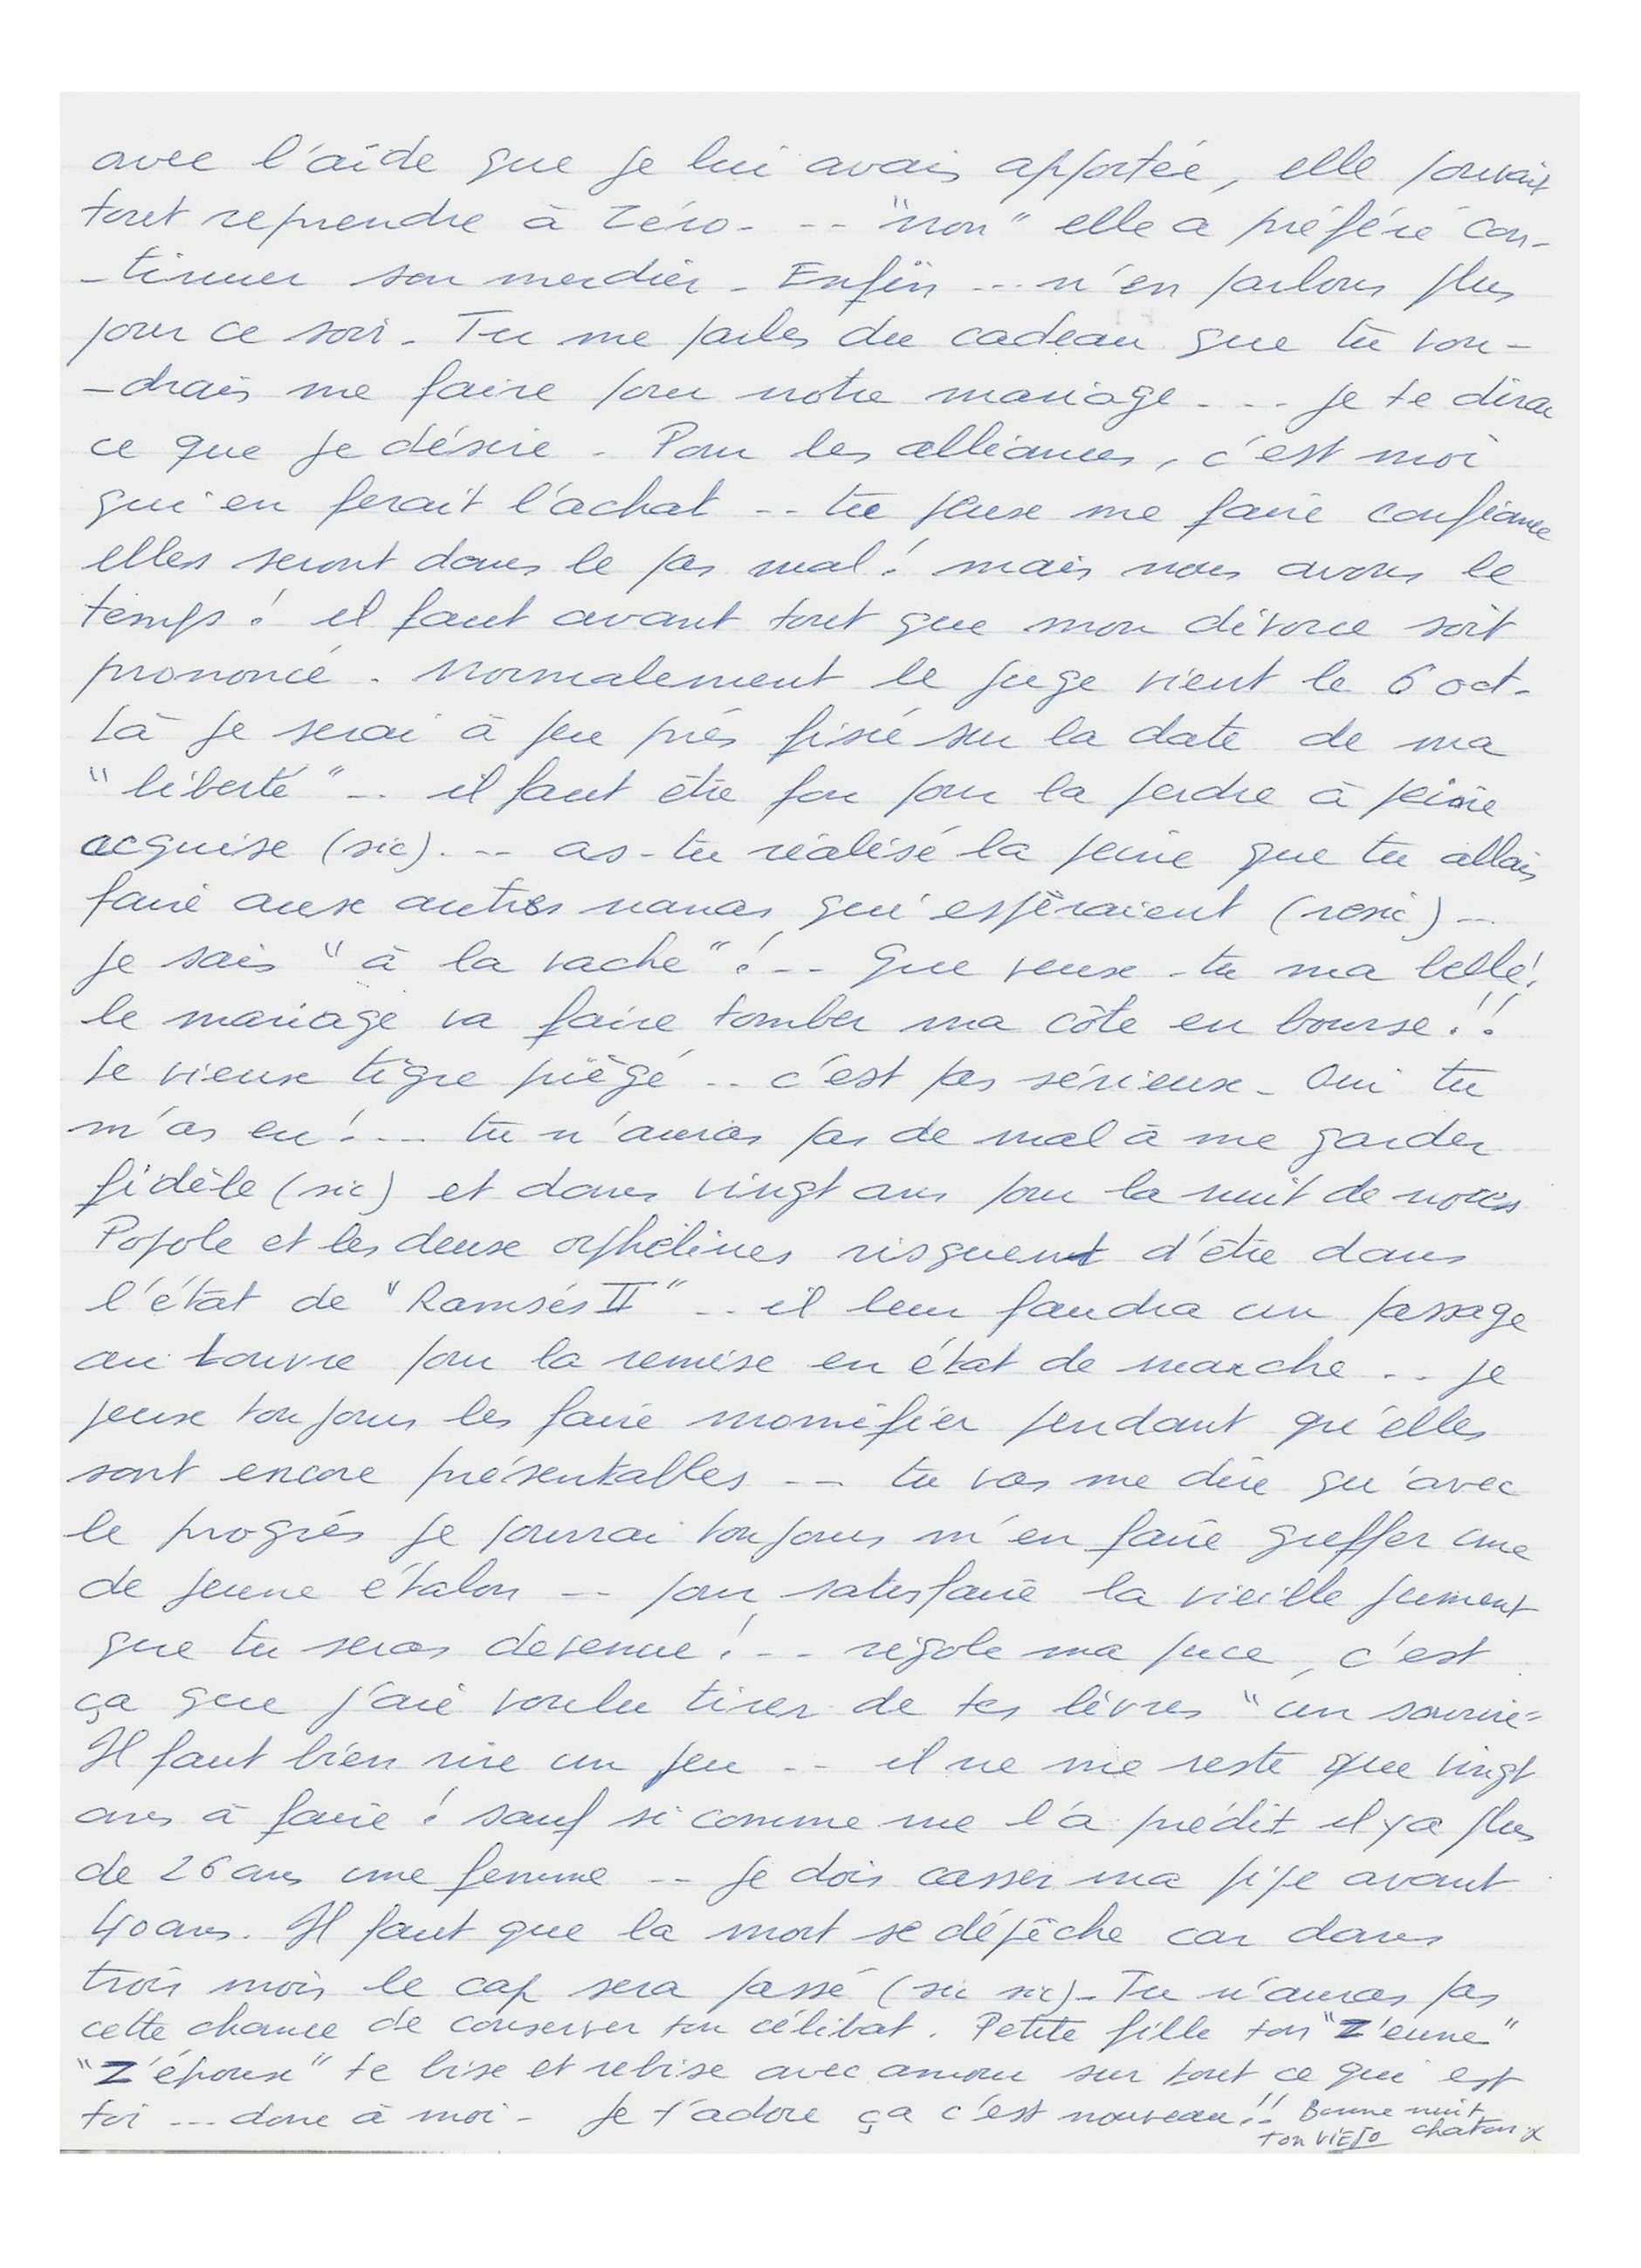 avec l'aide que je lui avais apportée, elle pouvait
tout reprendre à zéro- -- "non" elle a préféré con-
-tinuer son merdier - Enfin --- n'en parlons plus
pour ce soir - Tu me parles du cadeau que tu vou-
-drais me faire pour notre mariage - -- je te dirai
ce que je désire - Pour les alliances, c'est moi
qui en ferait l'achat -- tu peux me faire confiance
elles seront dans le pas mal ! mais nous avons le
temps ! il faut avant tout que mon divorce soit
prononcé - Normalement le juge vient le 6 oct-
Là je serai à peu près fixé sur la date de ma
"liberté" -- il faut être fou pour la perdre à peine
acquise (sic) - -- as-tu réalisé la peine que tu allais
faire aux autres nanas qui espèraient (resic) --
je sais "à la vache" ! -- Que veux-tu ma belle !
le mariage va faire tomber ma côte en bourse !!
Le vieux tigre piègé -- c'est pas sérieux - Oui tu
m'as eu ! --- tu n'auras pas de mal à me garder
fidèle (sic) et dans vingt ans pour la nuit de noces
Popole et les deux orphelines risquent d'être dans
l'état de "Ramsés II" -- il leur faudra un passage
au Louvre pour la remise en état de marche - -- je
peux toujours les faire momifier pendant qu'elles
sont encore présentables --- tu vas me dire qu'avec
le progrés je pourrai toujours m'en faire greffer une
de jeune étalon -- pour satisfaire la vieille jument
que tu seras devenue ! -- rigole ma puce, c'est
ça que j'ai voulu tirer de tes lèvres "un sourire"
Il faut bien rire un peu -- il ne me reste que vingt
ans à faire ! sauf si comme me l'a prédit il y a plus
de 26 ans une femme -- je dois casser ma pipe avant
40 ans. Il faut que la mort se dépêche car dans
trois mois le cap sera passé (sic sic) - Tu n'auras pas
cette chance de conserver ton célibat. Petite fille ton "Z'eune"
"Z'époux" te bise et rebise avec amour sur tout ce qui est
toi --- donc à moi - Je t'adore ça c'est nouveau !! Bonne nuit
ton VIEJO chaton x